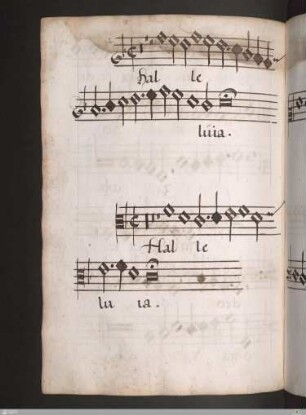 Hal le
luia.
Hal le
lu ia.